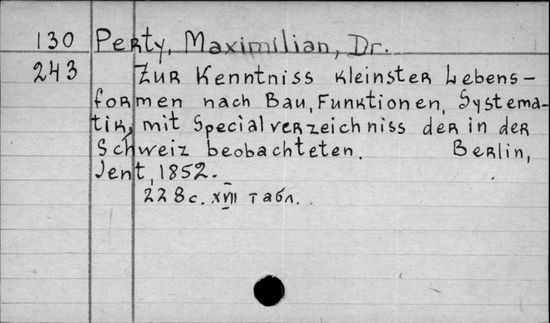 130 Perty, Maximilian, Dr.
243 Zur Kenntniss kleinster Lebens-
formen nach Bau, Funktionen, Systema-
tik, mit Specialverzeichniss der in der
Schweiz beobachteten. Berlin,
Jent, 1852.
228 с. XVII табл.